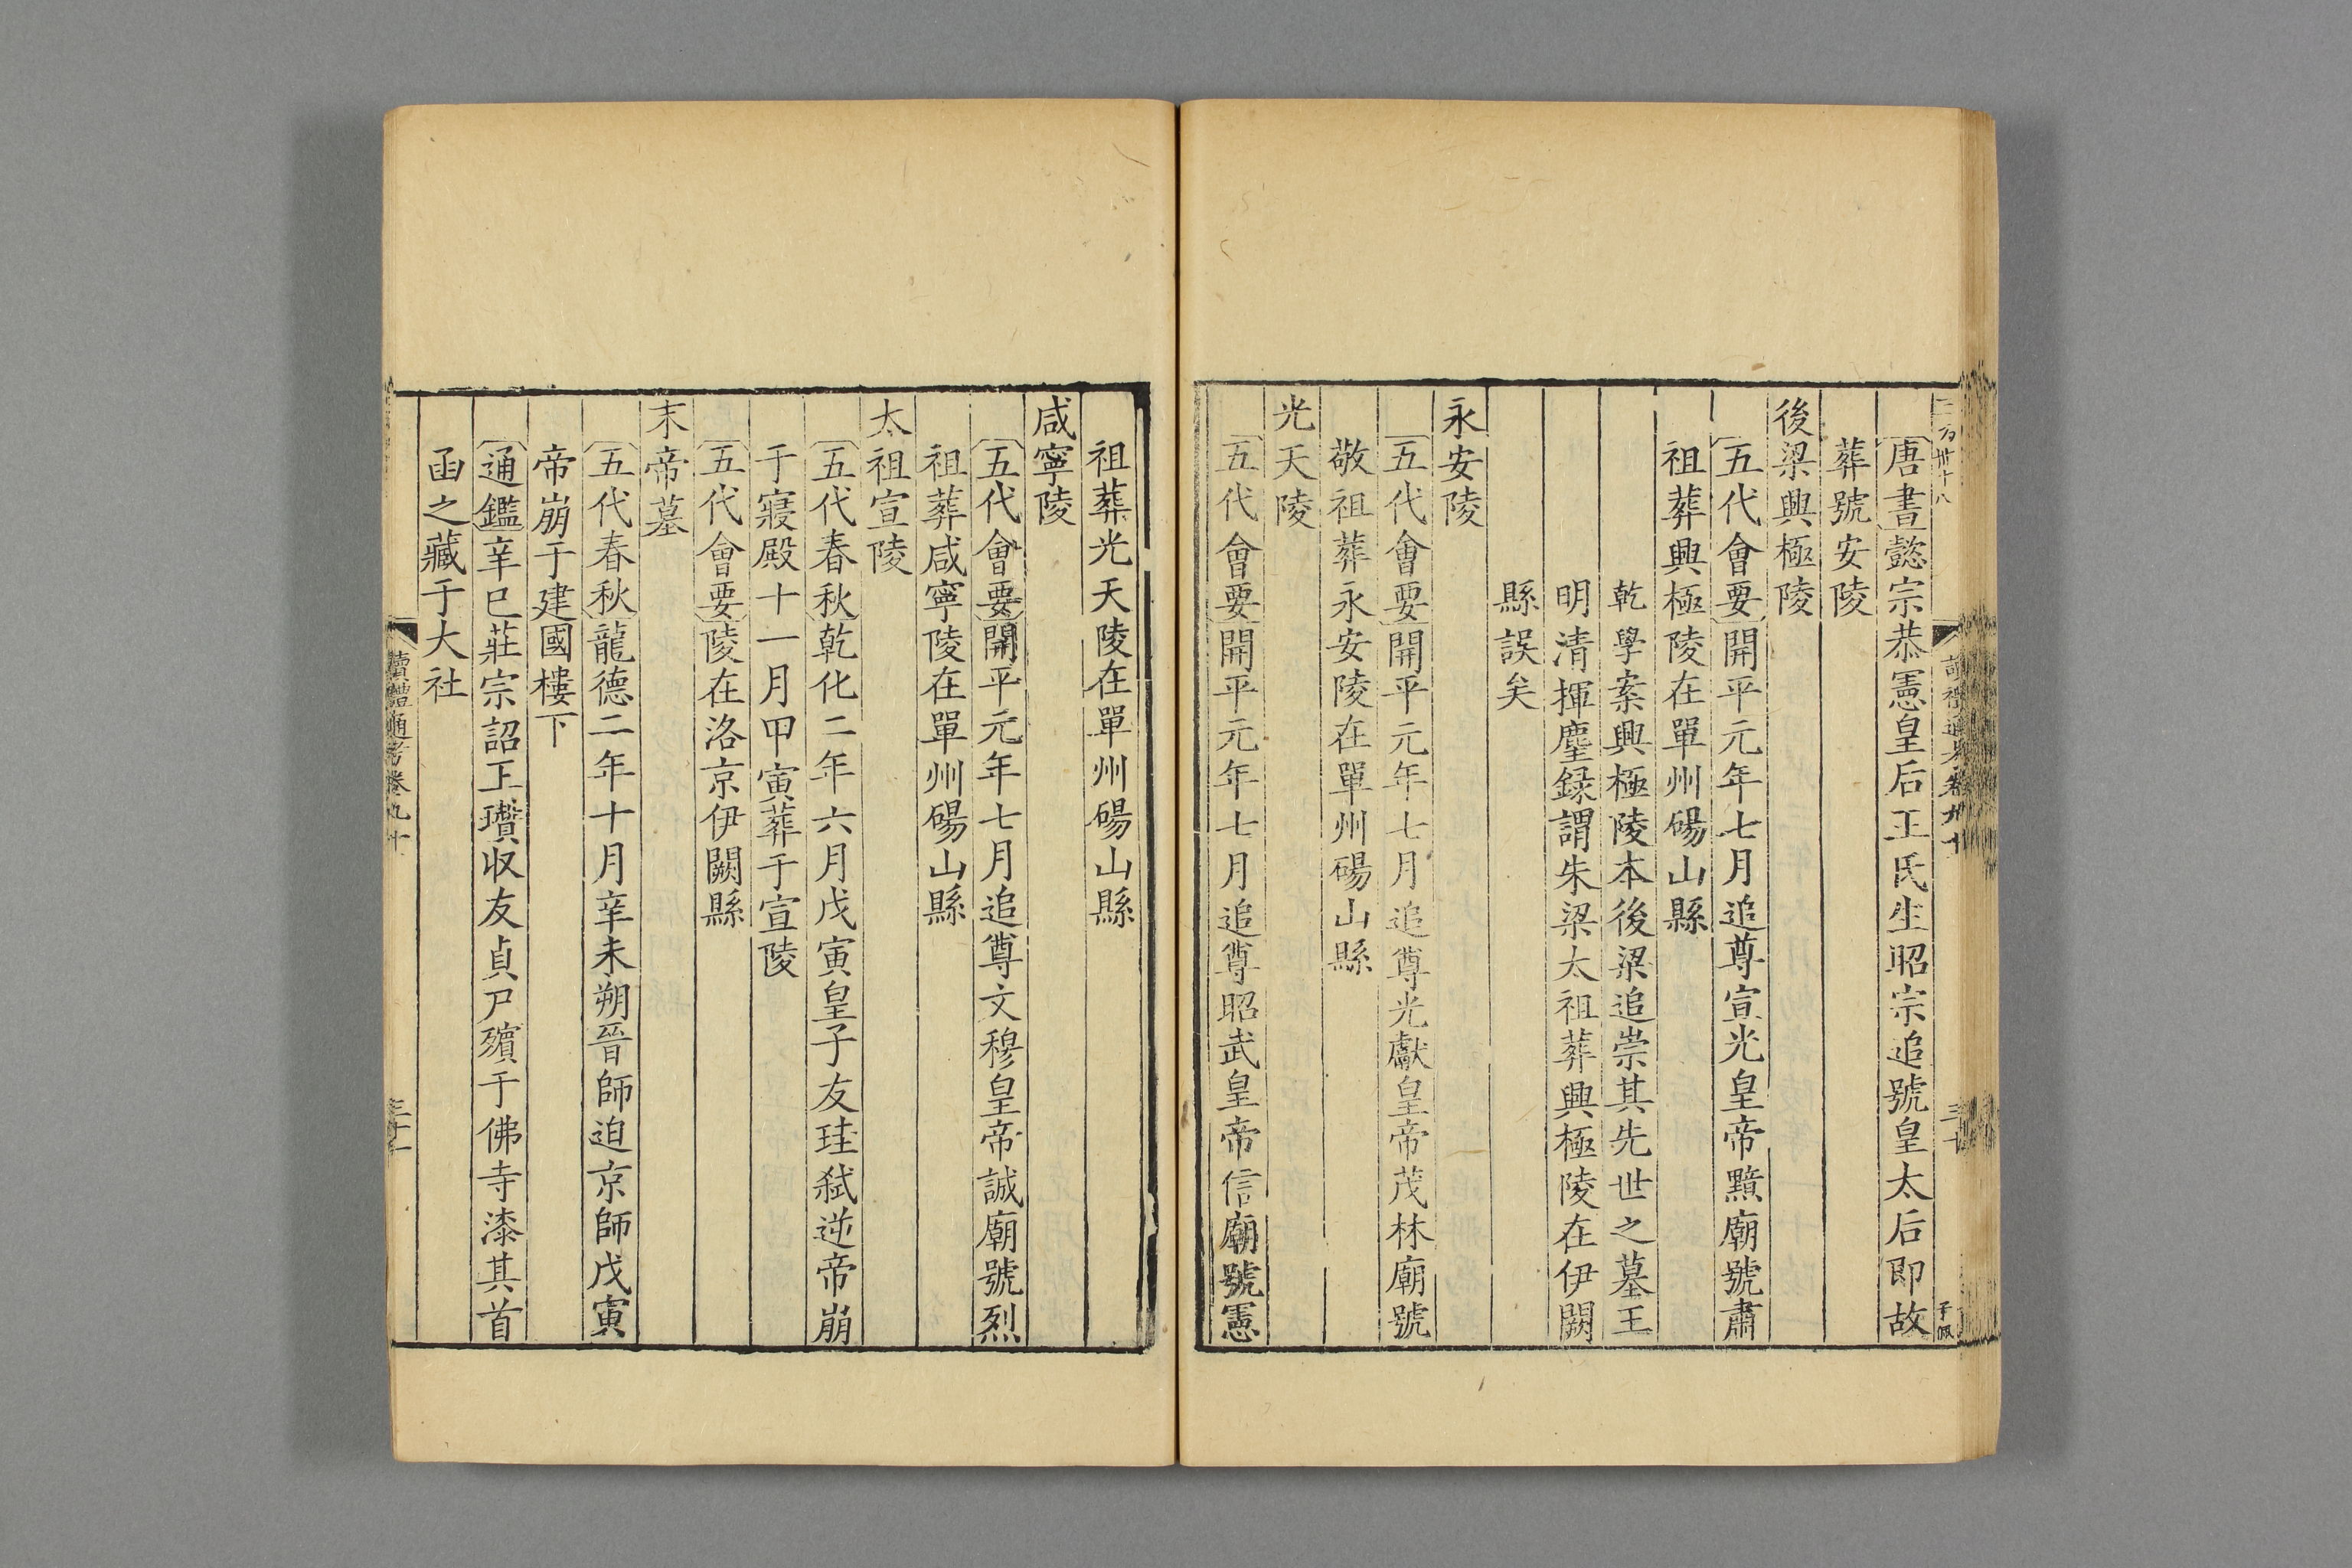 唐書懿宗恭憲皇后王氏生昭宗追號皇太后即故
葬號安陵
後梁興極陵
五代會要開平元年七月追尊宣光皇帝黯廟號肅
祖葬興極陵在單州碭山縣
乾學案興極陵本後梁追崇其先世之墓王
明清揮麈録謂朱梁太祖葬興極陵在伊闕
縣誤矣
永安陵
五代會要開平元年七月追尊光獻皇帝茂林廟號
敬祖葬永安陵在單州碭山縣
光天陵
五代會要開平元年七月追尊昭武皇帝信廟號憲
祖葬光天陵在單州碭山縣
咸寧陵
五代會要開平元年七月追尊文穆皇帝誠廟號烈
祖葬咸寧陵在單州碭山縣
太祖宣陵
五代春秋乾化二年六月戊寅皇子友珪弑逆帝崩
于寢殿十一月甲寅葬于宣陵
五代會要陵在洛京伊闕縣
末帝墓
五代春秋龍德二年十月辛未朔晉師迫京師戊寅
帝崩于建國樓下
通鑑辛巳莊宗詔王瓚收友貞尸殯于佛寺漆其首
函之藏于大社
讀禮通考卷九十
三十一